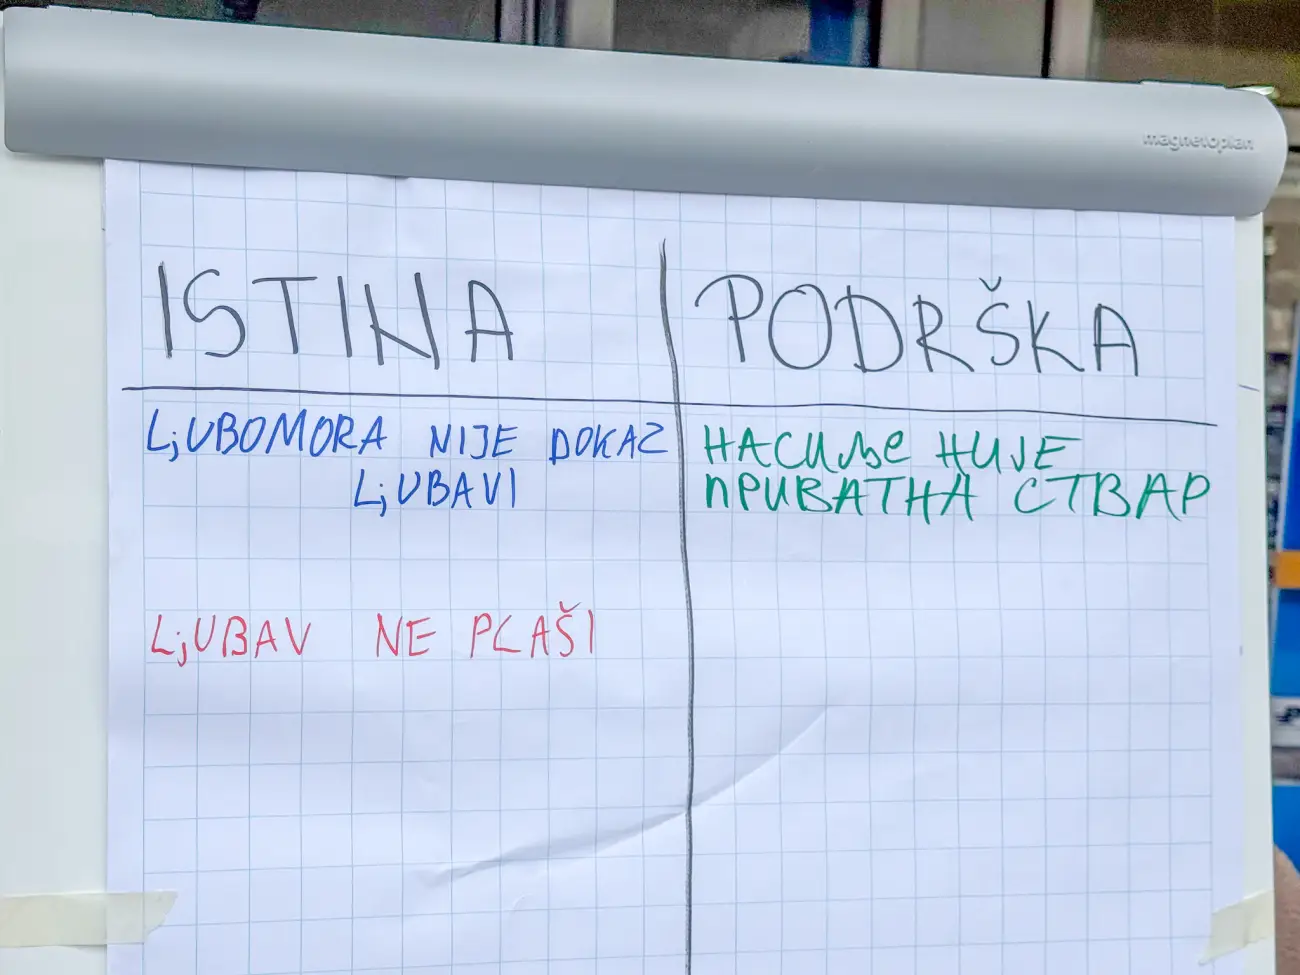 magnetoplan
ISTINA
PODRŠKA
LJUBOMORA NIJE DOKAZ
LJUBAVI
LJUBAV NE PLAŠI
НАСИЉЕ НИЈЕ
ПРИВАТНА СТВАР